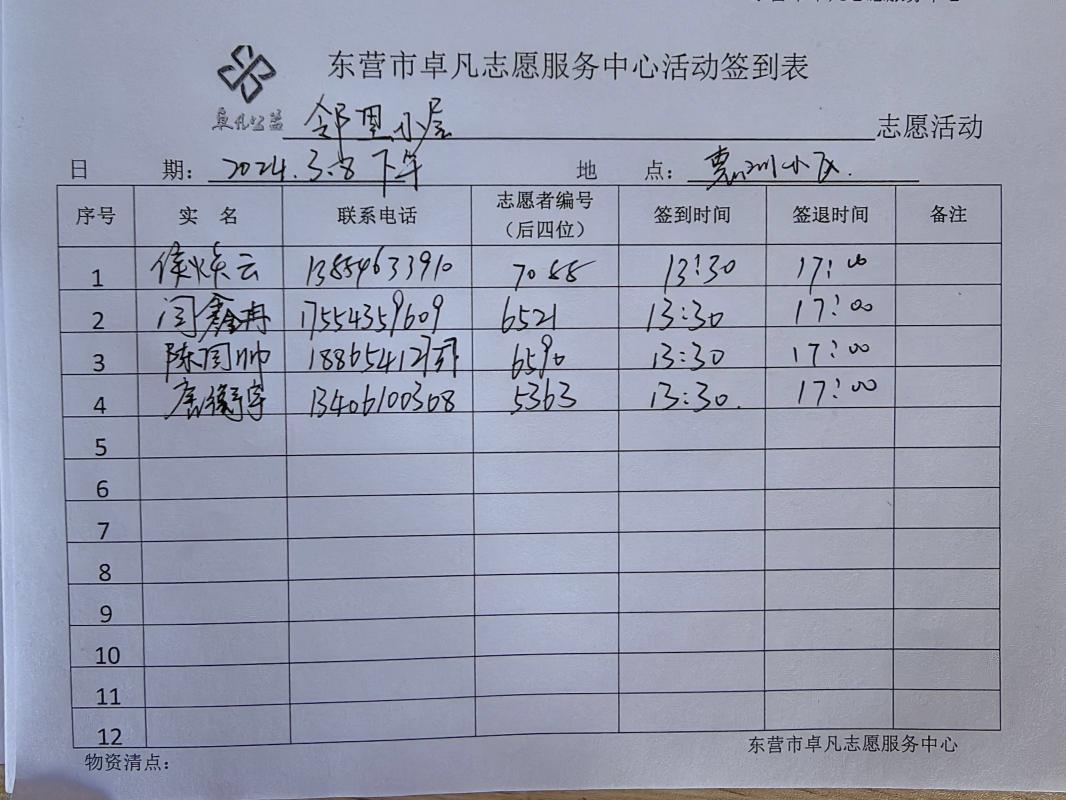 东营市卓凡志愿服务中心活动签到表
卓凡公益 邻里小屋 志愿活动
日 期: 2024.3.8 下午 地 点: 小区.
序号 实 名 联系电话 志愿者编号(后四位) 签到时间 签退时间 备注
1 侯焕云 13854633910 7088 13:30 17:00
2 闫鑫冉 17554359609 6521 13:30 17:00
3 陈同帅 6590 13:30 17:00
4 唐 13406100308 5363 13:30. 17:00
5
6
7
8
9
10
11
12
物资清点: 东营市卓凡志愿服务中心